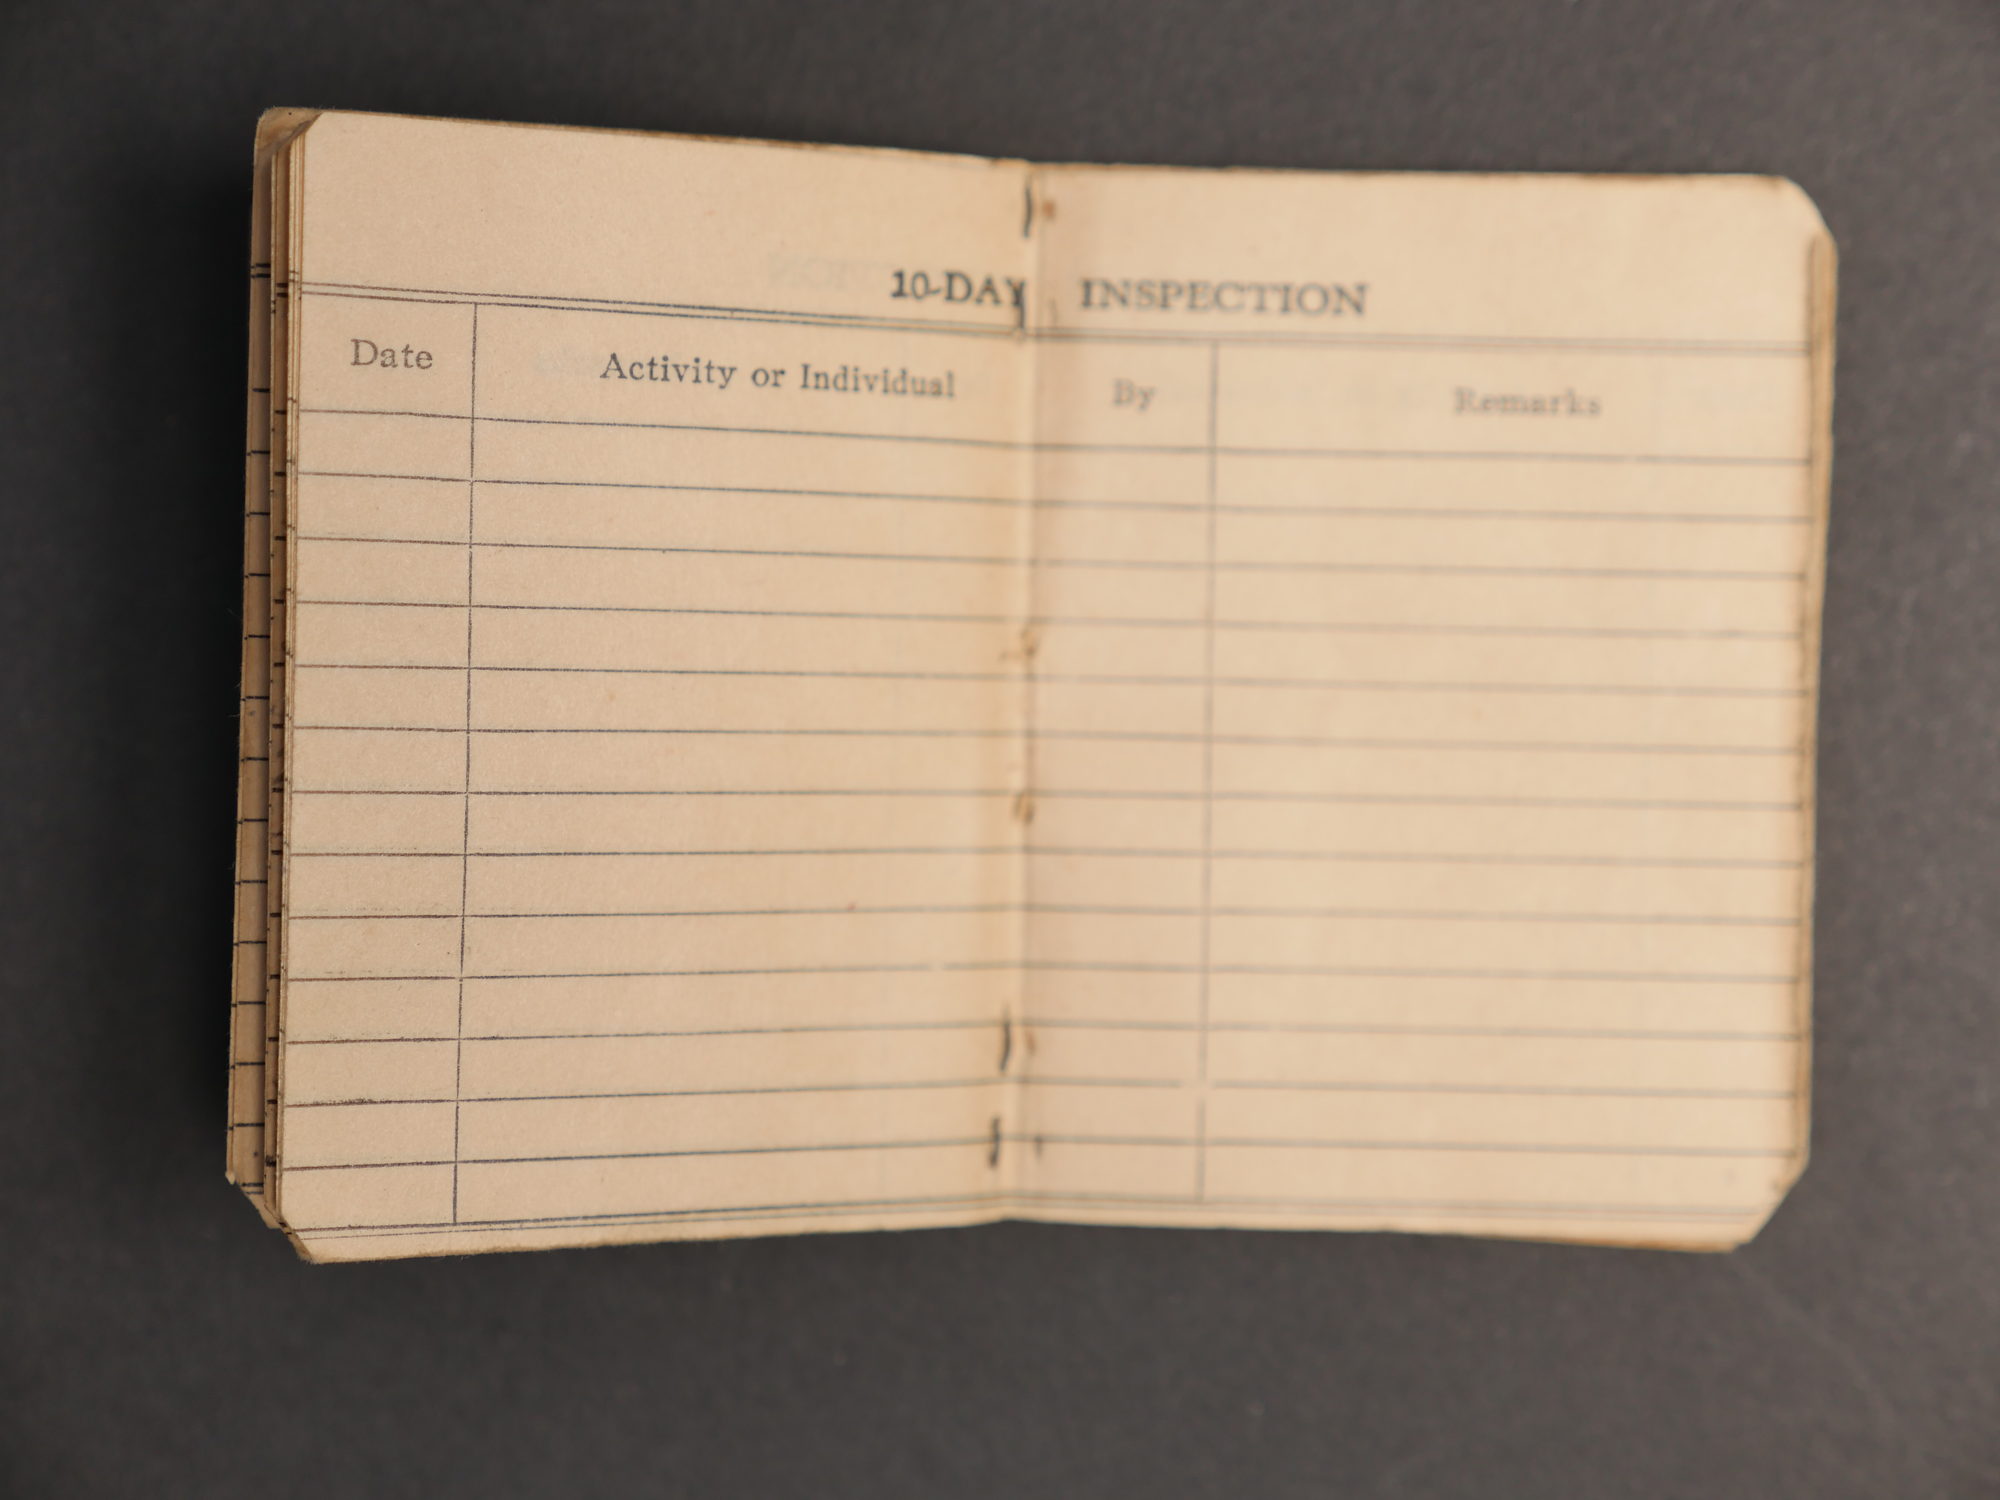 10-DAY INSPECTION
Date Activity or Individual By Remarks